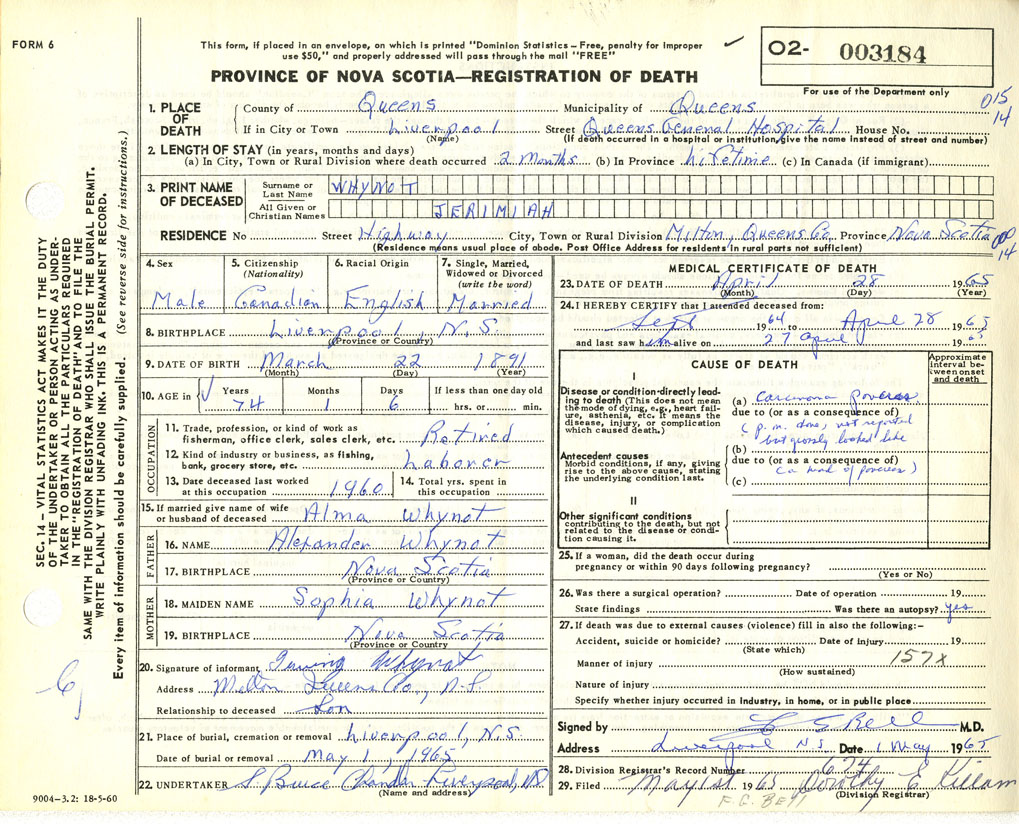 FORM 6
This form, if placed in an envelope, on which is printed "Dominion Statistics – Free, penalty for improper
use $50," and properly addressed will pass through the mail "FREE"
02- 003184
For use of the Department only
PROVINCE OF NOVA SCOTIA—REGISTRATION OF DEATH
015
14
1. PLACE OF DEATH
County of Queens Municipality of Queens
If in City or Town Liverpool Street Queens General Hospital House No.
(Name) (If death occurred in a hospital or institution, give the name instead of street and number)
2. LENGTH OF STAY (in years, months and days)
(a) In City, Town or Rural Division where death occurred 2 Months (b) In Province Lifetime (c) In Canada (if immigrant)
3. PRINT NAME OF DECEASED
Surname or Last Name WHYNOT
All Given or Christian Names JERIMIAH
RESIDENCE No Street Highway City, Town or Rural Division Milton, Queens Co. Province Nova Scotia
000
14
(Residence means usual place of abode. Post Office Address for residents in rural parts not sufficient)
4. Sex Male
5. Citizenship (Nationality) Canadian
6. Racial Origin English
7. Single, Married, Widowed or Divorced (write the word) Married
8. BIRTHPLACE Liverpool, N.S.
(Province or Country)
9. DATE OF BIRTH March 22 1891
(Month) (Day) (Year)
10. AGE in Years 74 Months 1 Days 6 If less than one day old hrs. or min.
OCCUPATION
11. Trade, profession, or kind of work as
fisherman, office clerk, sales clerk, etc. Retired
12. Kind of industry or business, as fishing,
bank, grocery store, etc. Laborer
13. Date deceased last worked
at this occupation 1960
14. Total yrs. spent in
this occupation
15. If married give name of wife
or husband of deceased Alma Whynot
FATHER
16. NAME Alexander Whynot
17. BIRTHPLACE Nova Scotia
(Province or Country)
MOTHER
18. MAIDEN NAME Sophia Whynot
19. BIRTHPLACE Nova Scotia
(Province or Country)
20. Signature of informant Whynot
Address Milton Queens Co., N.S.
Relationship to deceased Son
21. Place of burial, cremation or removal Liverpool, N.S.
Date of burial or removal May 1, 1965
22. UNDERTAKER Bruce Liverpool, NS
(Name and address)
9004-3.2: 18-5-60
MEDICAL CERTIFICATE OF DEATH
23. DATE OF DEATH April 28 1965
(Month) (Day) (Year)
24. I HEREBY CERTIFY that I attended deceased from:
Sept 1964 to April 28 1965
and last saw him alive on 27 April 1965
CAUSE OF DEATH
Approximate interval between onset and death
I
Disease or condition directly leading to death (This does not mean the mode of dying, e.g., heart failure, asthenia, etc. It means the disease, injury, or complication which caused death.)
(a) carcinoma pancreas
due to (or as a consequence of)
(p.m. done, not reported
but grossly looked like
Antecedent causes
Morbid conditions, if any, giving rise to the above cause, stating the underlying condition last.
(b)
due to (or as a consequence of)
(ca head of pancreas)
(c)
II
Other significant conditions
contributing to the death, but not related to the disease or condition causing it.
25. If a woman, did the death occur during
pregnancy or within 90 days following pregnancy?
(Yes or No)
26. Was there a surgical operation? Date of operation 19
State findings Was there an autopsy? yes
27. If death was due to external causes (violence) fill in also the following:-
Accident, suicide or homicide? Date of injury 19
(State which)
Manner of injury 157x
(How sustained)
Nature of injury
Specify whether injury occurred in industry, in home, or in public place
Signed by F G Bell M.D.
Address Liverpool N S Date 1 May 1965
28. Division Registrar's Record Number 674
29. Filed May 1st 1965 Dorothy E Killam
(Division Registrar)
F. G. BELL
SEC. 14 – VITAL STATISTICS ACT MAKES IT THE DUTY
OF THE UNDERTAKER OR PERSON ACTING AS UNDER-
TAKER TO OBTAIN ALL THE PARTICULARS REQUIRED
IN THE "REGISTRATION OF DEATH" AND TO FILE THE
SAME WITH THE DIVISION REGISTRAR WHO SHALL ISSUE THE BURIAL PERMIT.
WRITE PLAINLY WITH UNFADING INK. THIS IS A PERMANENT RECORD.
Every item of information should be carefully supplied. (See reverse side for instructions.)